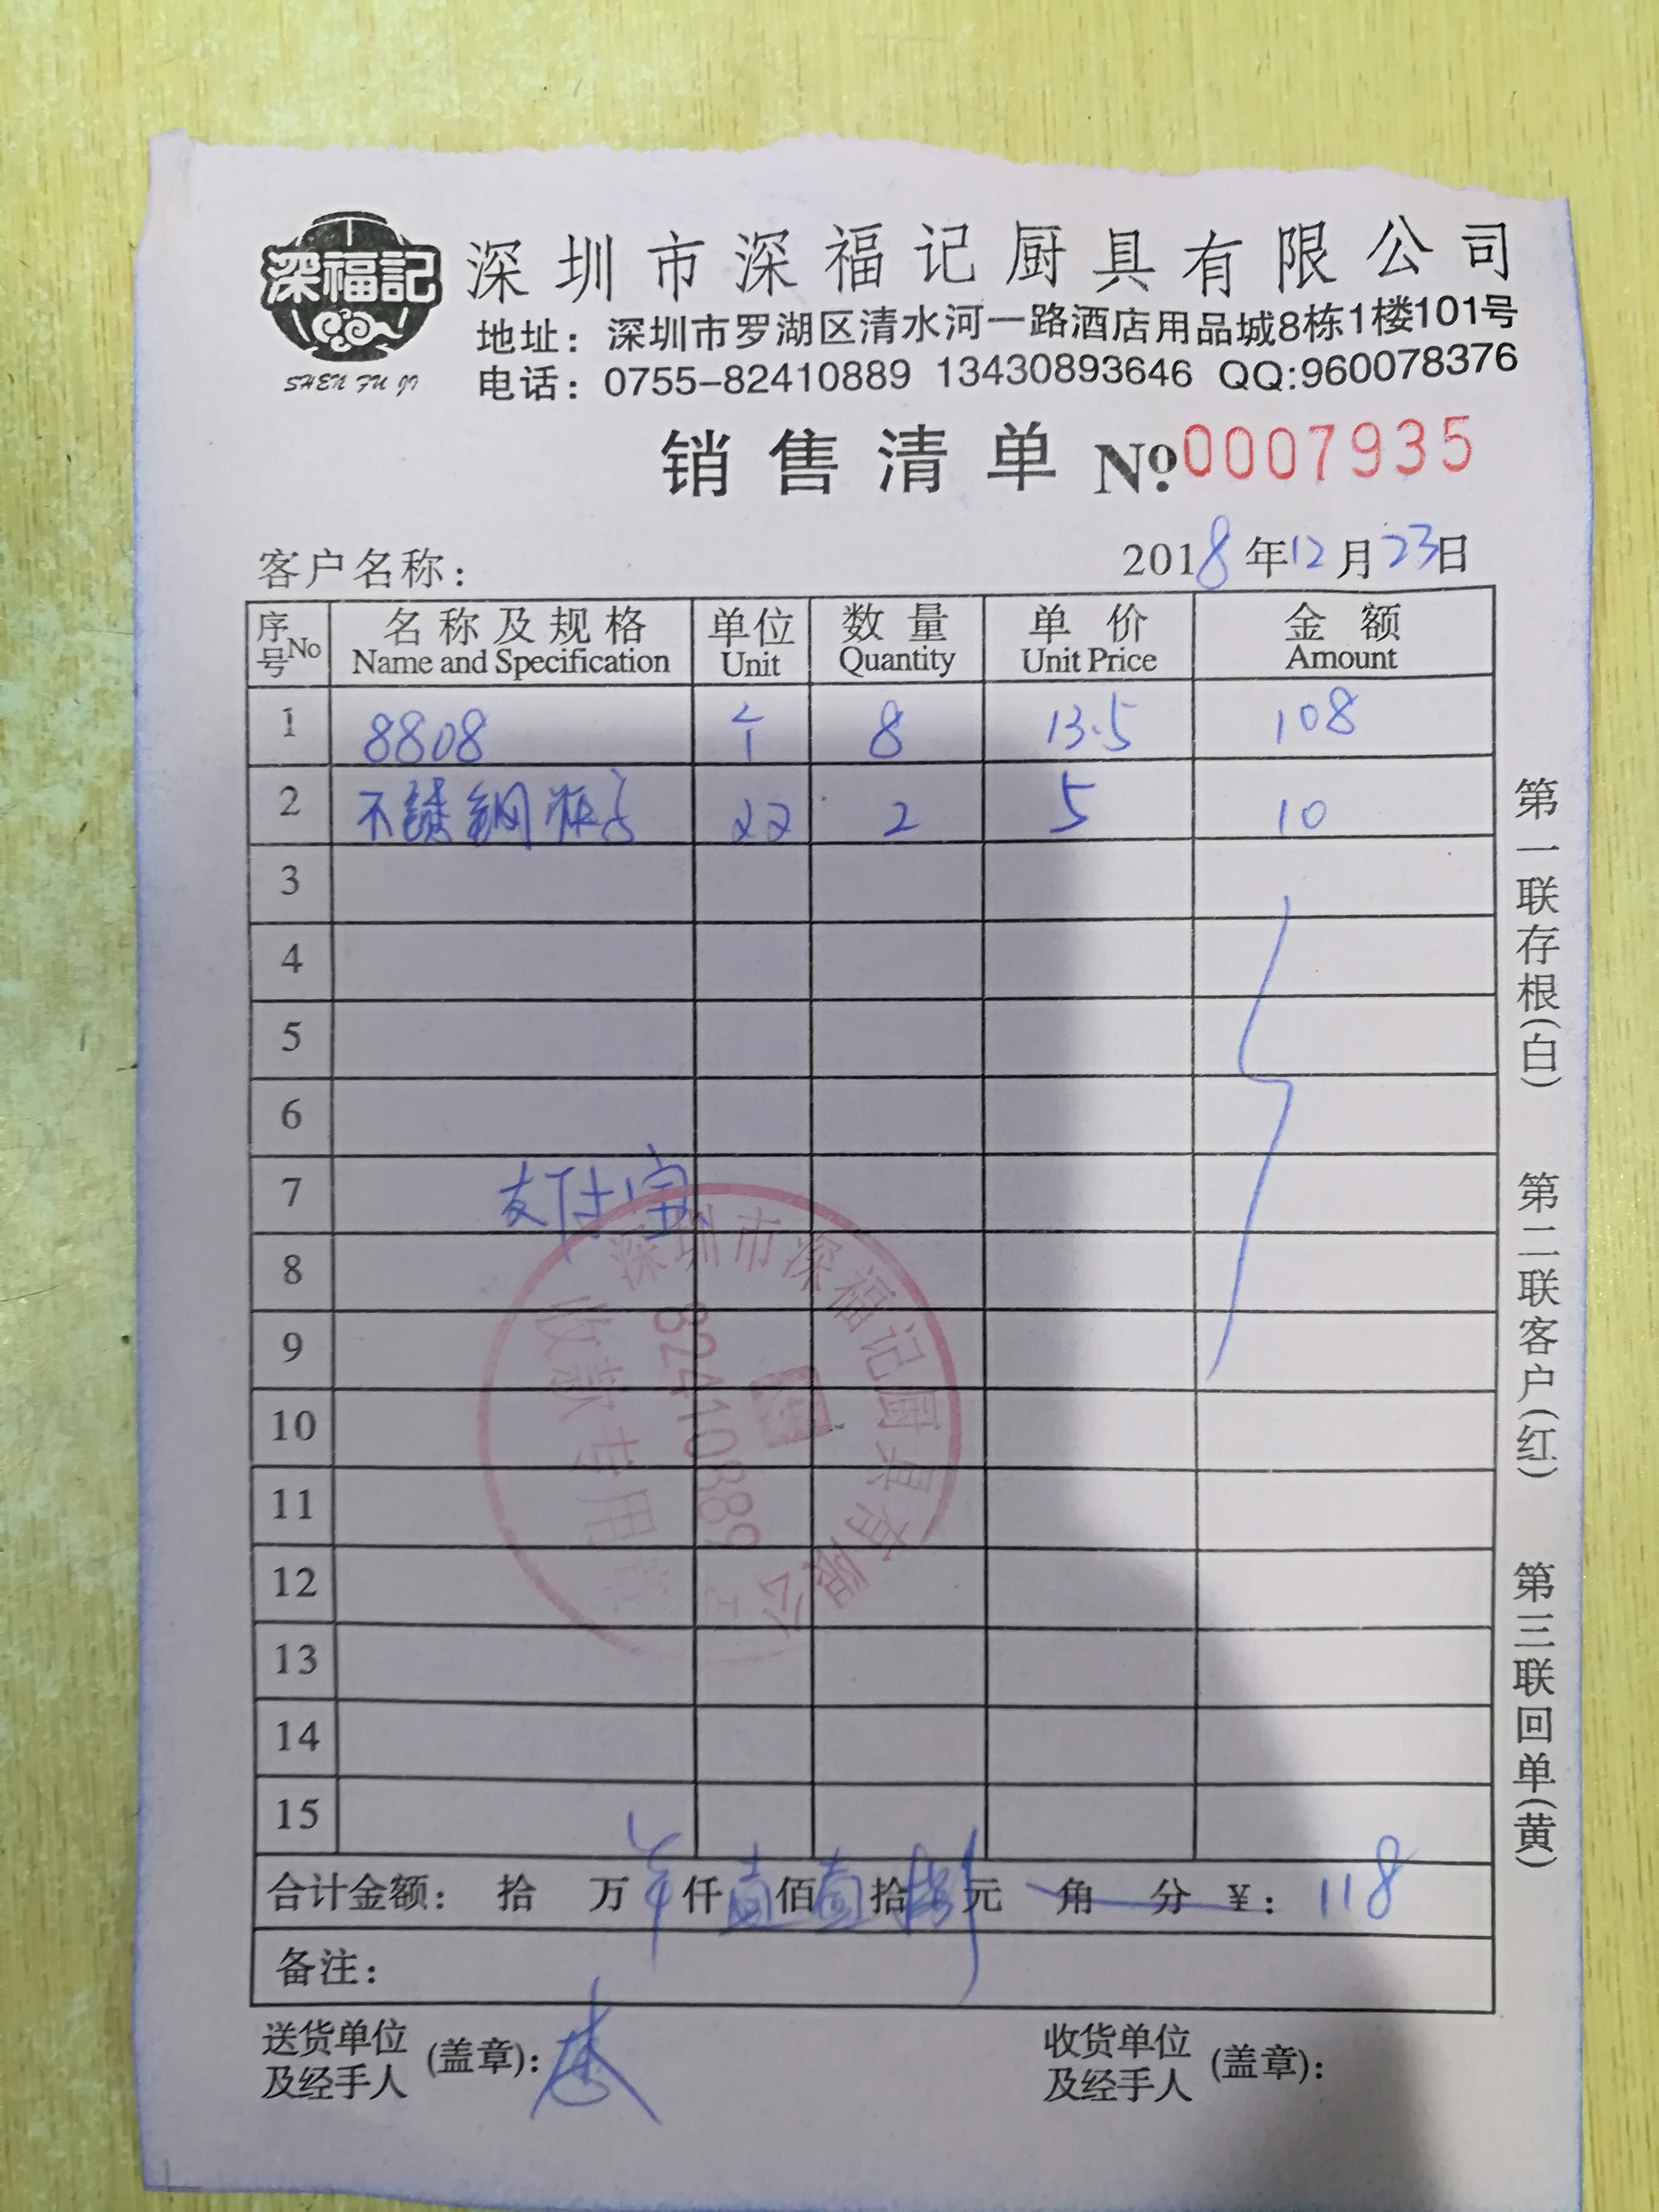 深福記
SHEN FU JI
深圳市深福记厨具有限公司
地址：深圳市罗湖区清水河一路酒店用品城8栋1楼101号
电话：0755-82410889 13430893646 QQ:960078376
销售清单 №0007935
客户名称：
2018年12月23日
序号No 名称及规格 Name and Specification 单位 Unit 数量 Quantity 单价 Unit Price 金额 Amount
1 8808 个 8 13.5 108
2 不锈钢 双 2 5 10
3
4
5
6
7 支付宝
8
9
10
11
12
13
14
15
深圳市深福记厨具有限公
82410889
收款专用
合计金额：拾 万 仟壹佰壹拾捌元 角 分 ¥：118
备注：
送货单位及经手人(盖章)：
收货单位及经手人(盖章)：
第一联存根(白)
第二联客户(红)
第三联回单(黄)